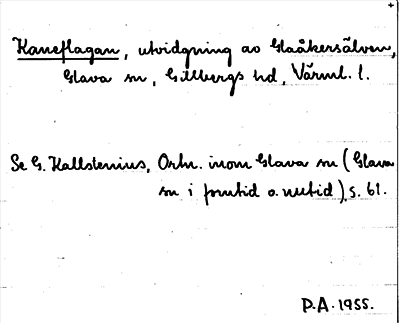 Kaneflagan, utvidgning av Glaåkersälven,
Glava sn, Gillbergs hd, Värml. l.
Se G. Kallstenius, Ortn. inom Glava sn (Glava
sn i forntid o. nutid), s. 61.
P.A. 1955.